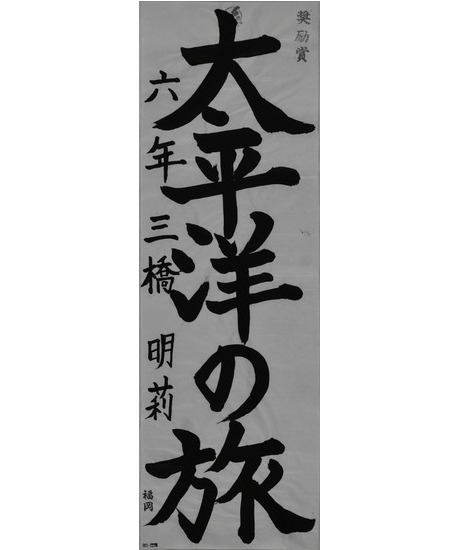 奨励賞
太平洋の旅
六年 三橋 明莉
福岡